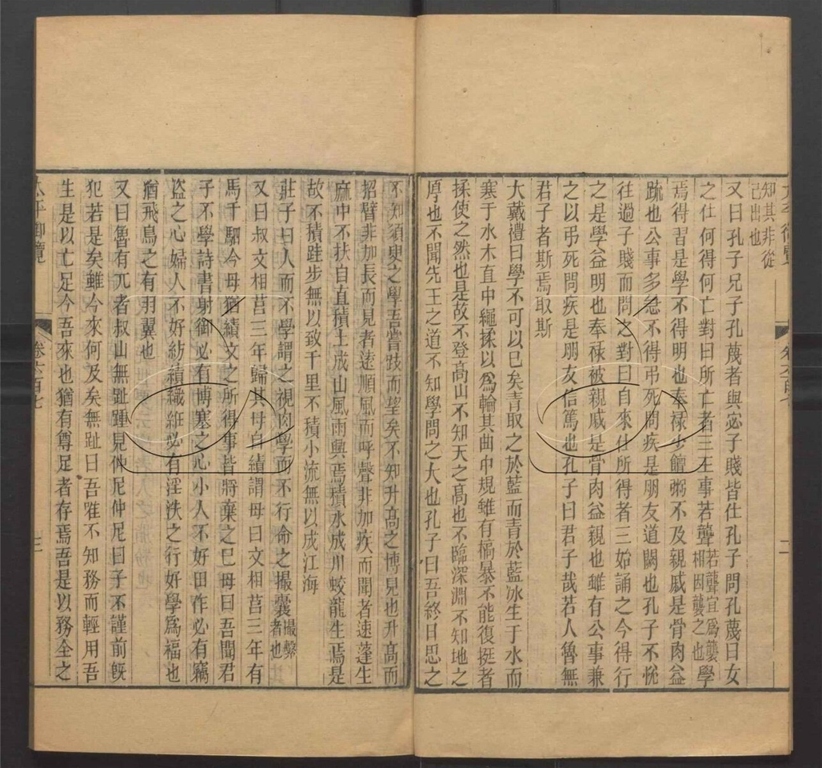 知其非從
己出也
又曰孔子兄子孔蔑者與宓子賤皆仕孔子問孔蔑曰女
之仕何得何亡對曰所亡者三王事若聾若聾宜爲讋相因讋之也學
焉得習是學不得明也奉祿少饘粥不及親戚是骨肉益
踈也公事多急不得弔死問疾是朋友道闕也孔子不恱
往過子賤而問之對曰自來仕所得者三始誦之今得行
之是學益明也奉祿被親戚是骨肉益親也雖有公事兼
之以弔死問疾是朋友信篤也孔子曰君子哉若人魯無
君子者斯焉取斯
大戴禮曰學不可以已矣青取之於藍而青於藍冰生于水而
寒于水木直中繩揉以爲輪其曲中規雖有槁暴不能復挺者
揉使之然也是故不登高山不知天之髙也不臨深淵不知地之
厚也不聞先王之道不知學問之大也孔子曰吾終日思之
不知須臾之學吾嘗跂而望矣不知升髙之博見也升髙而
招臂非加長而見者遠順風而呼聲非加疾而聞者速蓬生
麻中不扶自直積土成山風雨興焉積水成川蛟龍生焉是
故不積跬步無以致千里不積小流無以成江海
莊子曰人而不學謂之視肉學而不行命之撮囊撮繫者也
又曰叔文相莒三年歸其母自績謂母曰文相莒三年有
馬千駟今母猶績文之所得事皆將棄之已母曰吾聞君
子不學詩書射御必有博塞之心小人不好田作必有竊
盜之心婦人不好紡績織紝必有淫泆之行好學爲福也
猶飛鳥之有羽翼也
又曰魯有兀者叔山無趾踵見仲尼仲尼曰子不謹前旣
犯若是矣雖今來何及矣無趾曰吾唯不知務而輕用吾
生是以亡足今吾來也猶有尊足者存焉吾是以務全之
太平御覽
卷六百七
三